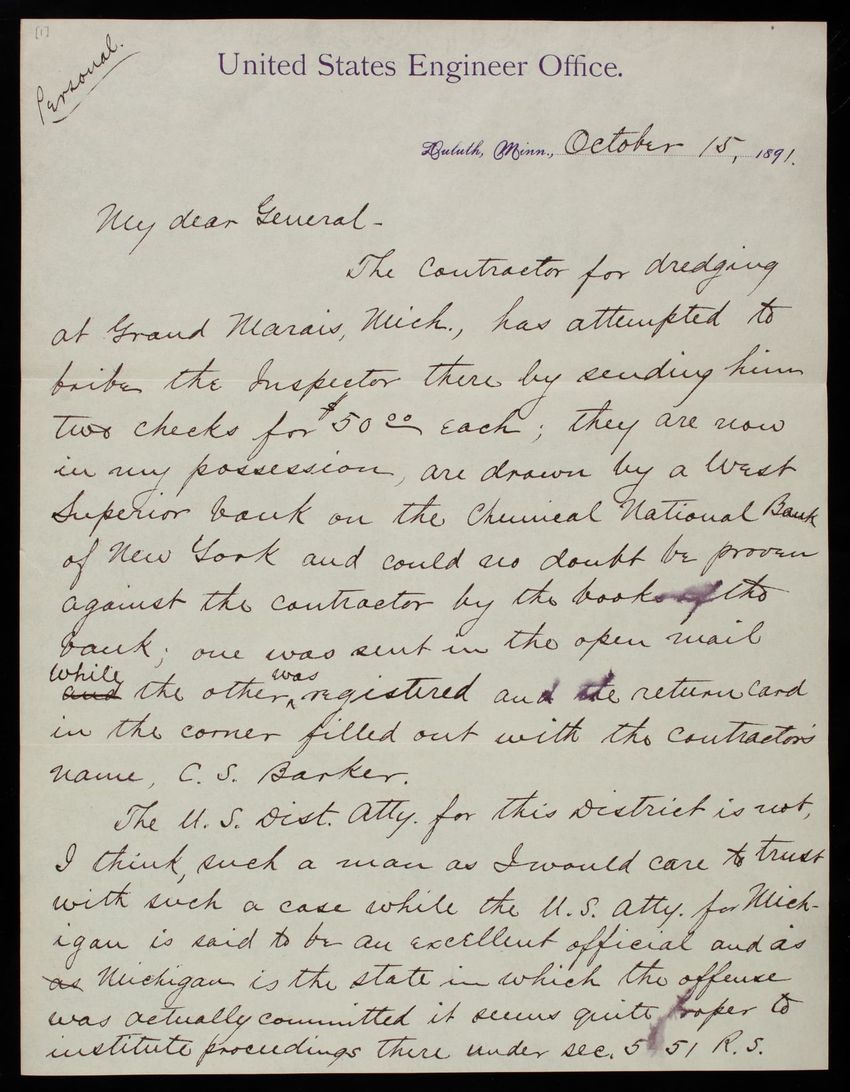 [1]
Personal.
United States Engineer Office.
Duluth, Minn., October 15, 1891.
My dear General -
The Contractor for dredging
at Grand Marais, Mich., has attempted to
bribe the Inspector there by sending him
two checks for $50 00 each; they are now
in my possession, are drawn by a West
Superior bank on the Chemical National Bank
of New York and could no doubt be proven
against the contractor by the books of the
bank; one was sent in the open mail
while
and the other was registered and the return card
in the corner filled out with the contractor's
name, C. S. Barker.
The U. S. Dist. Atty. for this District is not,
I think, such a man as I would care to trust
with such a case while the U. S. Atty. for Mich-
igan is said to be an excellent official and as
as Michigan is the state in which the offense
was actually committed it seems quite proper to
institute proceedings there under sec. 5 51 R. S.